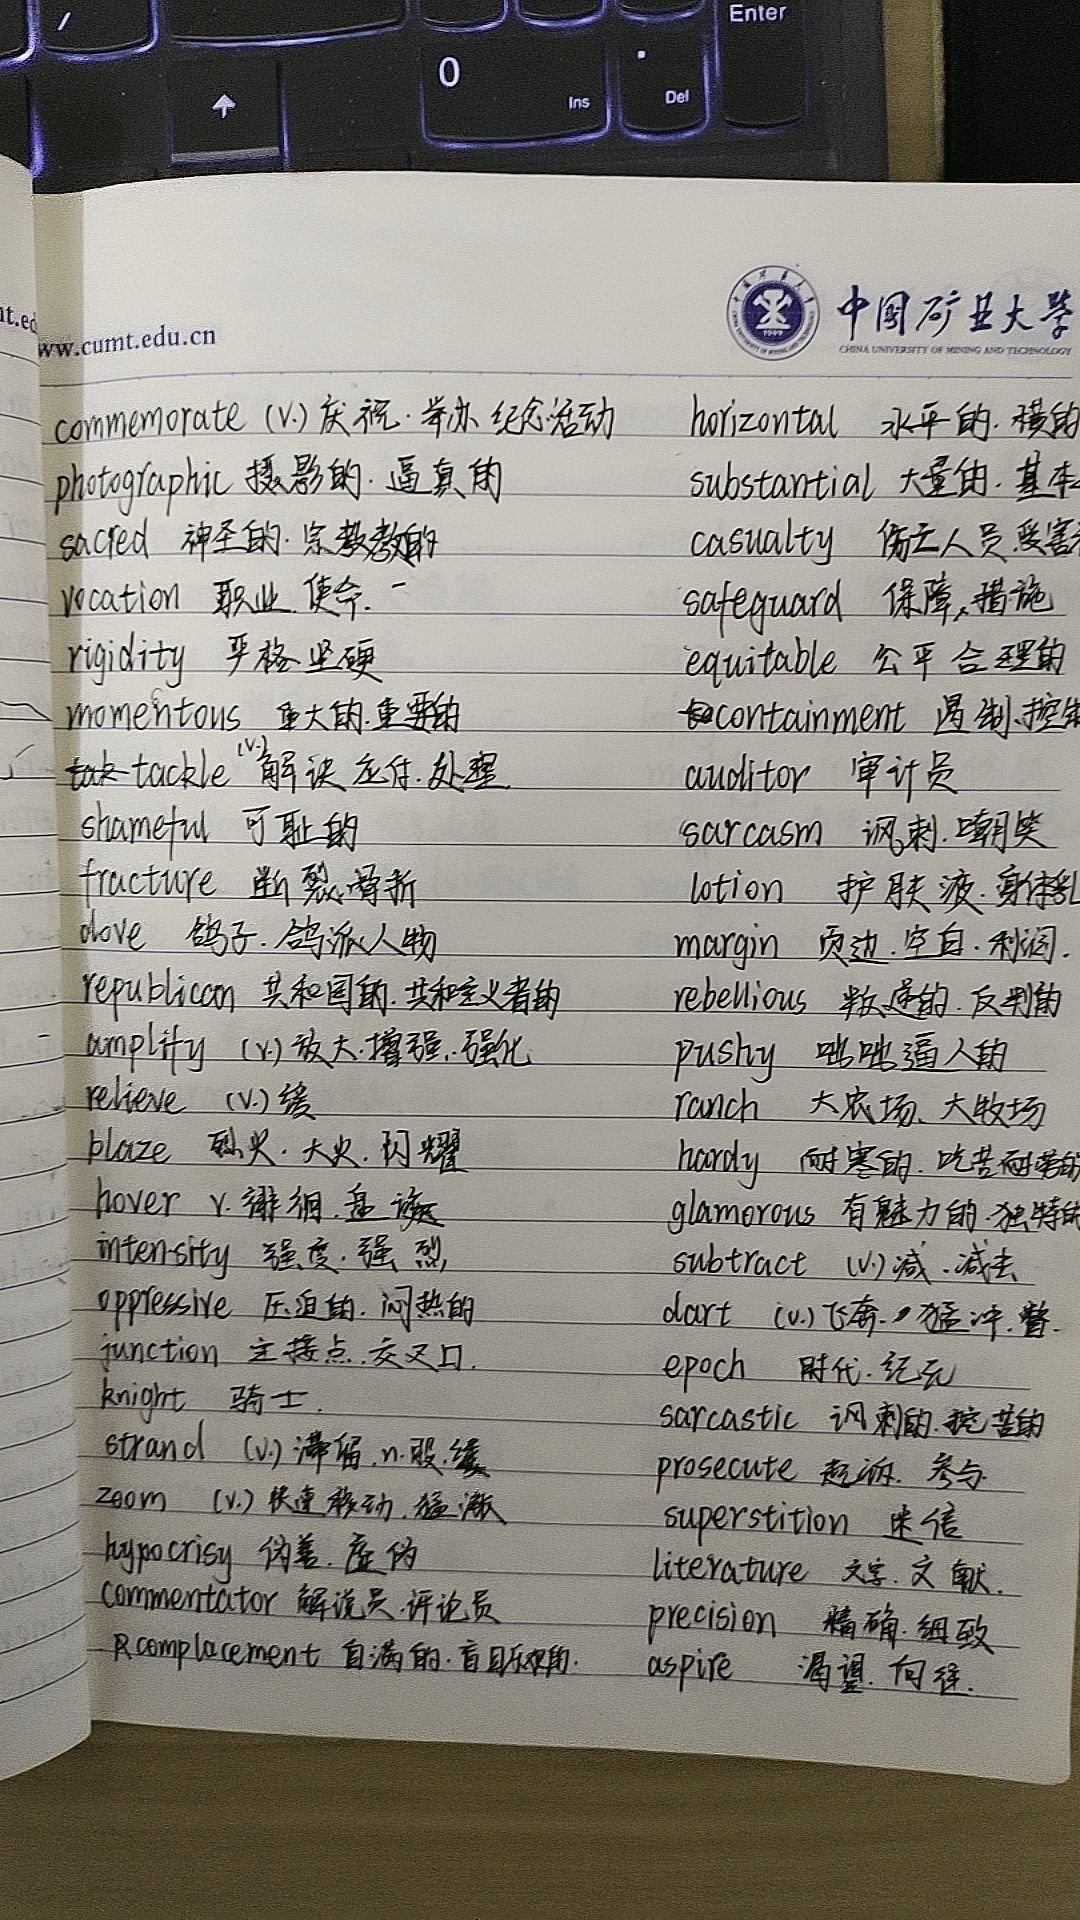 /
Enter
0
Ins
Del
www.cumt.edu.cn
中国矿业大学
CHINA UNIVERSITY OF MINING AND TECHNOLOGY
commemorate (v.) 庆祝. 举办 纪念活动
photographic 摄影的. 逼真的
sacred 神圣的. 宗教的
vocation 职业. 使命.
rigidity 严格 坚硬
momentous 重大的. 重要的
tackle (v.) 解决 应付. 处理
shameful 可耻的
fracture 断裂. 骨折
dove 鸽子. 鸽派人物
republican 共和国的. 共和主义者的
amplify (v.) 放大. 增强. 强化
relieve (v.) 缓
blaze 烈火. 大火. 闪耀
hover v. 徘徊. 盘
intensity 强度. 强烈
oppressive 压迫的. 闷热的
junction 接点. 交叉口.
knight 骑士.
strand (v.) 滞留. n. 股.
zoom (v.) 快速移动. 猛涨
hypocrisy 伪善. 虚伪
commentator 解说员. 评论员
complacement 自满的. 盲目乐观的.
horizontal 水平的. 横的
substantial 大量的. 基本
casualty 伤亡人员 受害
safeguard 保障, 措施
equitable 公平 合理的
containment 遏制. 控制
auditor 审计员
sarcasm 讽刺. 嘲笑
lotion 护肤液. 身体乳
margin 页边. 空白. 利润.
rebellious 叛逆的. 反判的
pushy 咄咄逼人的
ranch 大农场、大牧场
hardy 耐寒的. 吃苦耐劳的
glamorous 有魅力的. 独特的
subtract (v.) 减. 减去
dart (v.) 飞奔. 猛冲.
epoch 时代. 纪元
sarcastic 讽刺的. 挖苦的
prosecute 起诉. 参与.
superstition 迷信
literature 文学. 文献.
precision 精确. 细致
aspire 渴望. 向往.